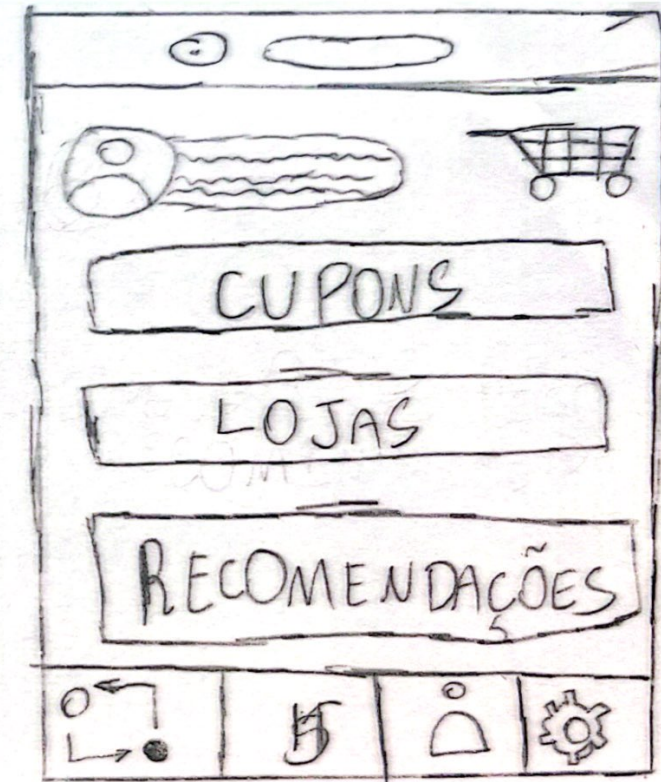 CUPONS
LOJAS
RECOMENDAÇÕES